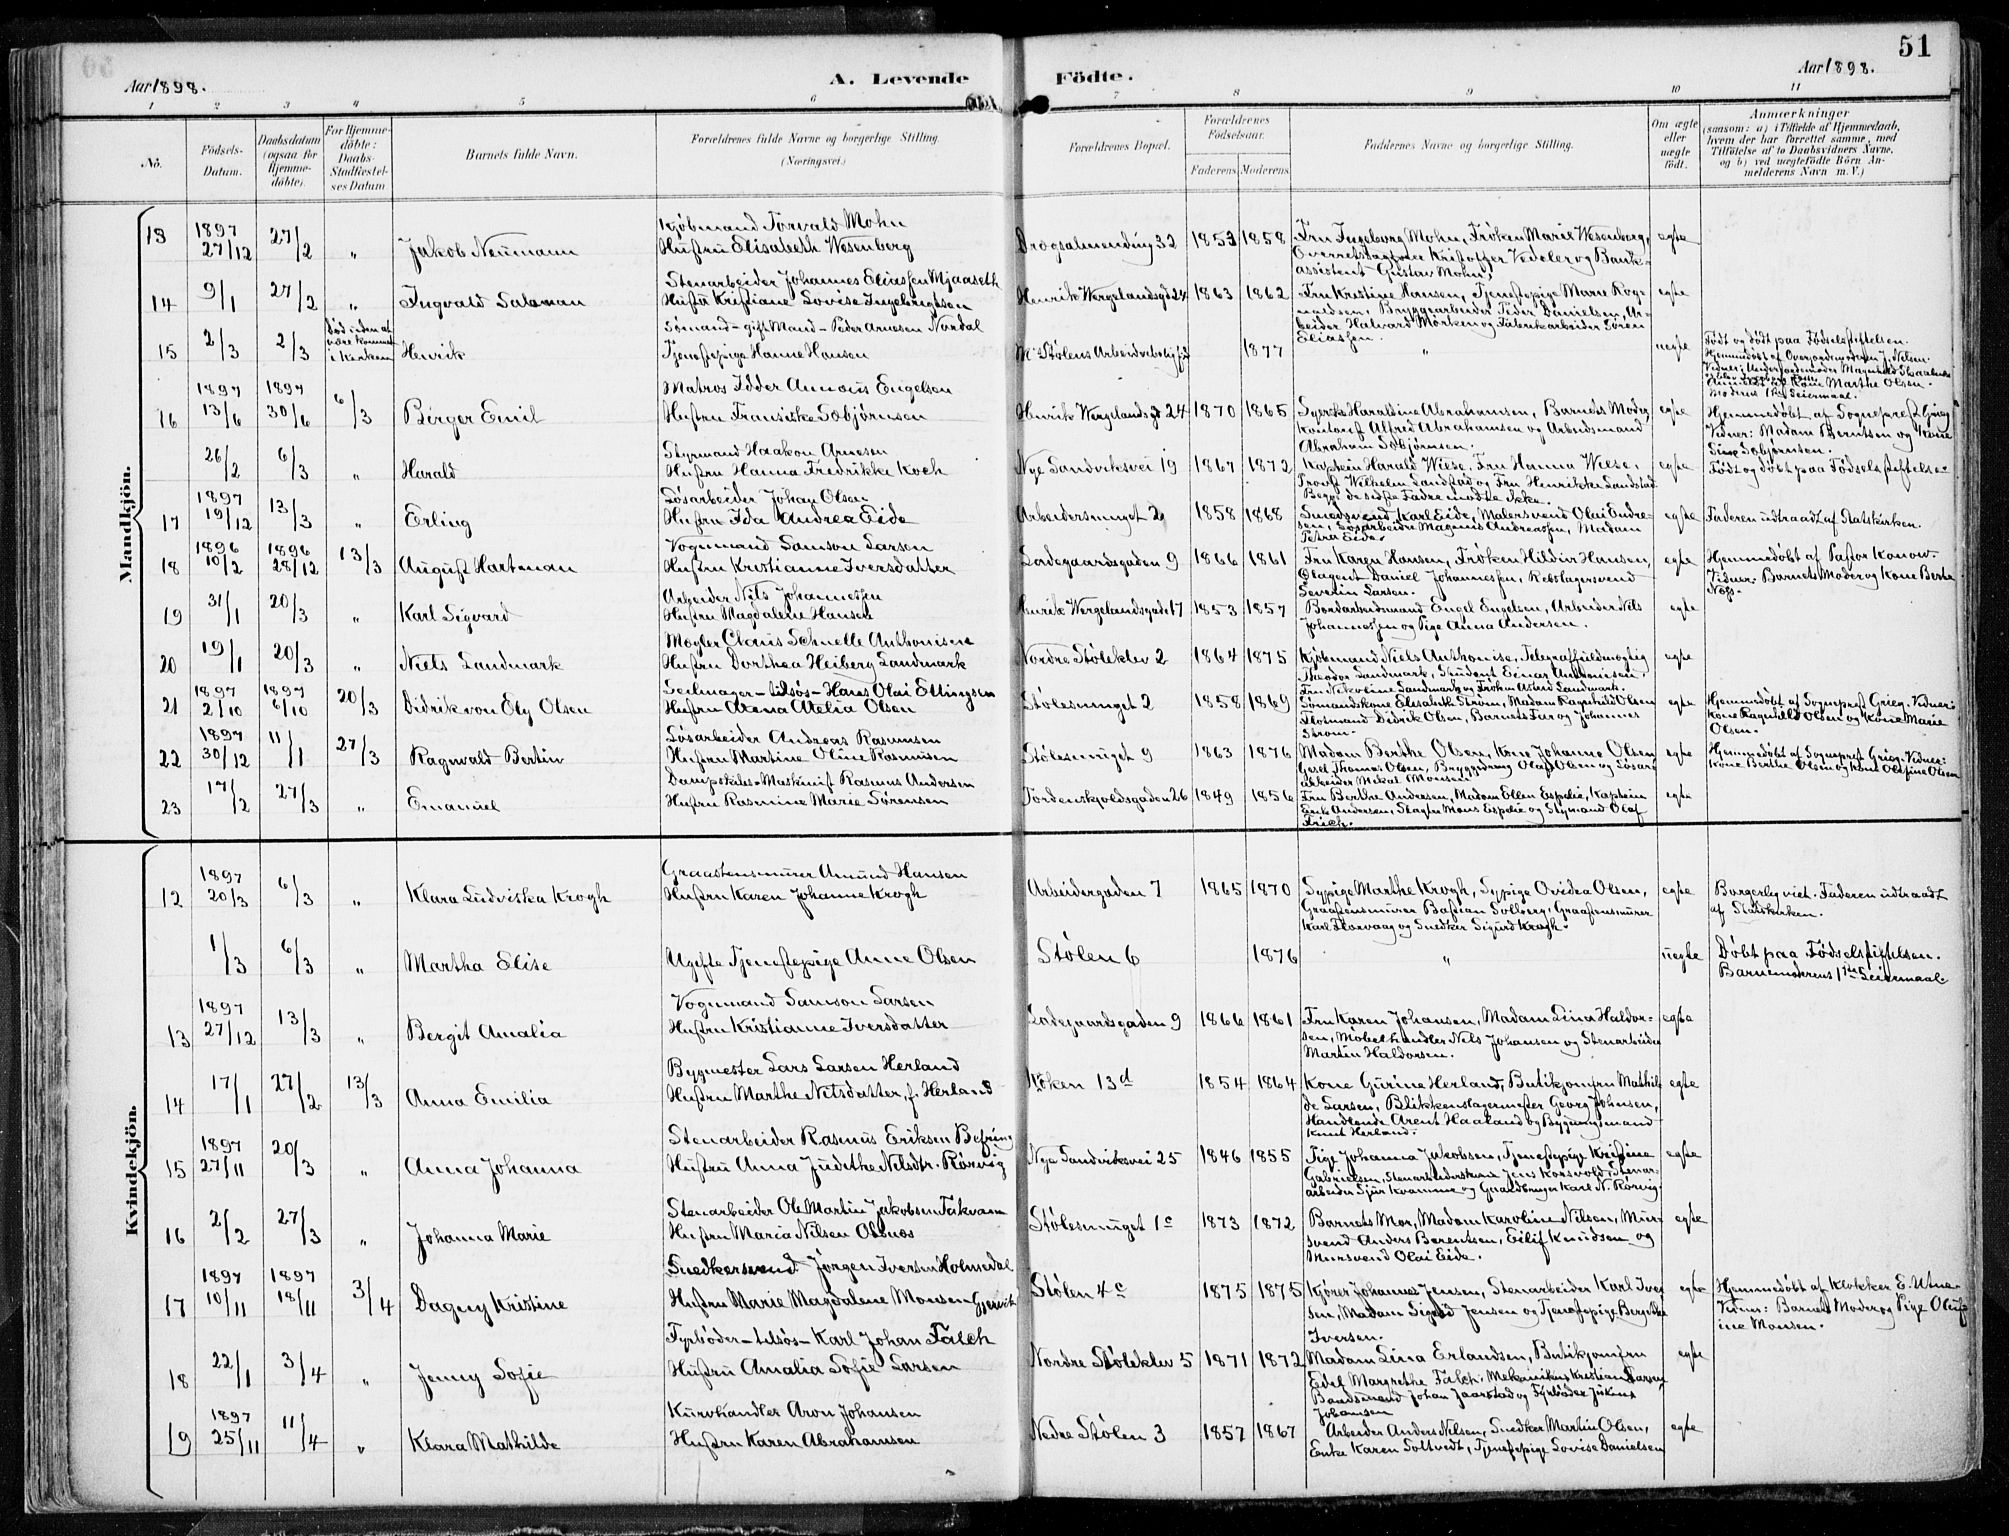 51
Aar 1898.
A. Levende Födte.
Aar 1898.
1 2 3 4 5 6 7 8 9 10 11
No.
Födsels-Datum.
Daabsdatum (ogsaa for Hjemme-döbte).
For Hjemme-döbte: Daabs-Stadfæstel-ses Datum
Barnets fulde Navn.
Forældrenes fulde Navne og borgerlige Stilling.
(Næringsvei.)
Forældrenes Bopæl.
Forældrenes Födselsaar.
Faderens. Moderens.
Faddernes Navne og borgerlige Stilling.
Om ægte eller uægte födt.
Anmærkninger
(saasom: a) i Tilfælde af Hjemmedaab, hvem der har forrettet samme, med Tilföielse af to Daabsvidners Navne, og b) ved uægtefödte Börn An-melderens Navn m. V.)
Mandkjön.
13 1897 27/12 27/2 " Jakob Neumann
Kjøbmand Torvald Mohn
Hustru Elisabeth Wesenberg
Dragsalmending 32 1853 1858
Fru Ingeborg Mohn, Frøken Marie Wesenberg,
Overretssagfører Kristoffer Vedeler og Bank-
assistent Gustav Mohn,
egte
14 9/1 27/2 " Ingvald Salaman
Stenarbeider Johannes Eliassen Mjaaseth
Hustru Kristiane Lovise Ingebrigtsen
Henrik Wergelandsgd 24 1863 1862
Fru Kristine Hansen, Tjenestepige Marie Rog-
naldsen, Bryggearbeider Peder Danielsen, Ar-
beider Halvard Mørken og Fabrikarbeider Søren
Eliassen
egte
15 2/3 2/3 Død uden at være kommen i Kirken Henrik
Sømand - gift Mand - Peder Arnesen Nordal
Tjenestepige Hanne Hansen
M. Stølens Arbeiderbolig 1877 " uegte
Født og døbt paa Fødselsstiftelsen.
Hjemmedøbt af Overjordemoderen J. Nelsen.
16 1897 13/6 1897 30/6 6/3 Birger Emil
Matros Idder Annæus Engelsen
Hustru Fransiske Sobjørnsen
Henrik Wergelandsgd 24 1870 1865
Syerske Haraldine Abrahamsen, Barnets Moder,
Kontorist Alfred Abrahamsen og Arbeidsmand
Abraham Sobjørnsen.
egte
Hjemmedøbt af Sogneprest Grieg
Vidner: Madam Berntsen og Kone
Sine Sobjørnsen.
26/2 6/3 " Harald
Styrmand Haakon Arnesen
Hustru Hanna Fredrikke Koch
Nye Sandviksvei 19 1867 1872
Kaptein Harald Wiese, Fru Hanna Wiese,
Provst Wilhelm Landstad og Fru Henrikke Landstad
Begge de sidste Fadre mødte ikke.
egte
Født og døbt paa Fødselsstiftelsen
17 1897 19/12 13/3 " Erling
Løsarbeider Johan Olsen
Hustru Ida Andrea Eide
Arbeidersmuget 2 1858 1868
Smedsvend Karl Eide, Malersvend Olai Endre-
sen, Løsarbeider Magnus Andreassen, Madam
Petra Eide.
egte
Faderen udtraadt af Statskirken.
18 1896 10/2 1896 28/12 13/3 August Hartman
Vognmand Samson Larsen
Hustru Kristianne Iversdatter
Ladegaardsgaden 9 1866 1861
Fru Karen Hansen, Frøken Hildur Hansen,
Ølagent Daniel Johannessen, Rebslagersvend
Severin Larsen.
egte
Hjemmedøbt af Pastor Konow.
Vidner Barnets Moder og Kone Berta
Næss.
19 31/1 20/3 " Karl Sigvard
Arbeider Nils Johannessen
Hustru Magdalene Hansen
Henrik Wergelandsgade 17 1853 1857
Bordarbeidsmand Engel Engelsen, Arbeider Nils
Johannessen og Pige Anna Andersen.
egte
20 19/1 20/3 " Niels Landmark
Mægler Claus Schnelle Anthonisen
Hustru Dorthea Heiberg Landmark
Nordre Støleklev 2 1864 1875
Kjøbmand Niels Anthonisen, Telegraffuldmægtig
Theodor Landmark, Student Einar Anthonisen,
Fru Nikoline Landmark og Frøken Astrid Landmark.
egte
21 1897 2/10 1897 6/10 20/3 Didrik von Ely Olsen
Seilmager - tilsøs - Hans Olai Ellingsen
Hustru Arena Atelia Olsen
Stølesmuget 2 1858 1869
Sømandskone Elisabeth Strøm, Madam Ragnhild Olsen
Flotmand Didrik Olsen, Barnets Far og Johannes
Strøm.
egte
Hjemmedøbt af Sognepræst Grieg. Vidner:
Kone Ragnhild Olsen og Kone Marie
Olsen.
22 1897 30/12 11/1 27/3 Ragnvald Bertin
Løsarbeider Andreas Rasmusen
Hustru Martine Oline Rasmusen
Stølesmuget 9 1863 1876
Madam Berthe Olsen, Kone Johanne Olsen
Gesel Thomas Olsen, Bryggedreng Olaf Olsen og Løsar-
arbeider Mikal Monsen
egte
Hjemmedøbt af Sognepræst Grieg. Vidner:
Kone Berthe Olsen og Kone Olefine Olsen
23 17/2 27/3 " Emanuel
Dampskibs-Maskinist Rasmus Andersen
Hustru Rasmine Marie Sørensen
Tordenskjoldsgaden 26 1849 1856
Fru Berthe Andresen, Madam Ellen Espelie, Kaptein
Erik Andersen, Slagter Mons Espelie og Styrmand Olaf
Frich.
egte
Kvindekjön.
12 1897 20/3 6/3 " Klara Ludviska Krogh
Graastensmurer Amund Hansen
Hustru Karen Johanne Krogh
Arbeidergaden 7 1865 1870
Sypige Marthe Krogh, Sypige Ovidea Olsen,
Graastensmurer Bastian Solberg, Graastensmurer
Karl Florvaag og Snedker Sigurd Krogh.
egte
Borgerlig viet. Faderen udtraadt
af Statskirken.
1/3 6/3 " Martha Elise
Ugifte Tjenestepige Anne Olsen
Stølen 6 1876 " uegte
Døbt paa Fødselsstiftelsen.
Barnemoderens 1ste Leiermaal.
13 1897 27/12 13/3 " Bergit Amalia
Vognmand Samson Larsen
Hustru Kristianne Iversdatter
Ladegaardsgaden 9 1866 1861
Fru Karen Johansen, Madam Lina Haldor-
sen, Møbelhandler Nels Johansen og Stenarbeider
Martin Haldorsen.
egte
14 17/1 27/2 13/3 Anna Emilia
Bygmester Lars Larsen Herland
Hustru Marthe Nilsdatter, f. Herland
Køken 13d 1854 1864
Kone Gurine Herland, Butikjomfru Mathil-
de Larsen, Blikkenslagermester Georg Johnsen,
Handlende Arent Haaland og Bygningsmand
Knut Herland.
egte
15 1897 27/11 20/3 " Anna Johanna
Stenarbeider Rasmus Eriksen Befring
Hustru Anna Judithe Nilsdtr. Rørvig
Nye Sandviksvei 25 1846 1855
Pige Johanna Jakobsen, Tjenestepige Kristine
Gabrielsen, Stenarbeiderskone Jens Korsvold, Stenar-
arbeider Sjur Kvamme og Gaardbruger Karl N. Rørvig.
egte
16 2/2 27/3 " Johanna Marie
Stenarbeider Ole Martin Jakobsen Takvam
Hustru Maria Nilsen Olsnes
Stølesmuget 1c 1873 1872
Barnets Mor, Madam Karoline Nilsen, Mur-
svend Anders Berentsen, Eilif Knudsen og
Mursvend Olai Eide.
egte
17 1897 10/11 1897 18/11 3/4 Dagny Kristine
Snedkersvend Jørgen Iversen Holmedal
Hustru Marie Magdalene Monsen Gjervik
Stølen 4c 1875 1875
Kjører Johannes Jensen, Stenarbeider Karl Iver-
sen, Madam Sigrid Jensen og Tjenestepige Bergithe
Iversen.
egte
Hjemmedøbt af Klokker E. Utne.
Vidner: Barnets Moder og Pige Oluf-
ine Monsen.
18 22/1 3/4 " Jenny Sofie
Fyrbøder - tilsøs - Karl Johan Falch
Hustru Amalia Sofie Larsen
Nordre Støleklev 5 1871 1872
Madam Lina Erlandsen, Butikjomfru
Edel Margrethe Falch, Mekanikus Kristian Larsen,
Baadsmand Johan Jaarstad og Fyrbøder
Johansen
egte
19 1897 25/11 11/4 " Klara Mathilde
Kurvhandler Aron Johansen
Hustru Karen Abrahamsen
Nedre Stølen 3 1857 1867
Arbeider Anders Nilsen, Snedker Martin Olsen,
Enke Karen Soltvedt, Tjenestepige Lovise Danielsen
egte